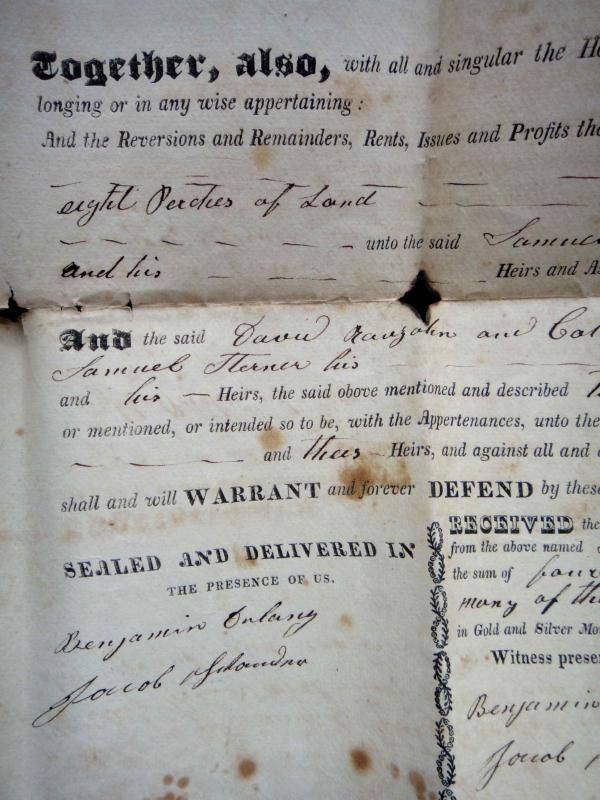 Together, also, with all and singular the
longing or in any wise appertaining:
And the Reversions and Remainders, Rents, Issues and Profits
eight Perches of Land
unto the said Samuel
and his Heirs and
And the said David and
Samuel Sterner his
and his Heirs, the said obove mentioned and described
or mentioned, or intended so to be, with the Appertenances, unto the
and Heirs, and against all and
shall and will WARRANT and forever DEFEND by these
SEALED AND DELIVERED IN
THE PRESENCE OF US.
Benjamin
Jacob
RECEIVED the
from the above named
the sum of four
in Gold and Silver
Witness
Benjamin
Jacob